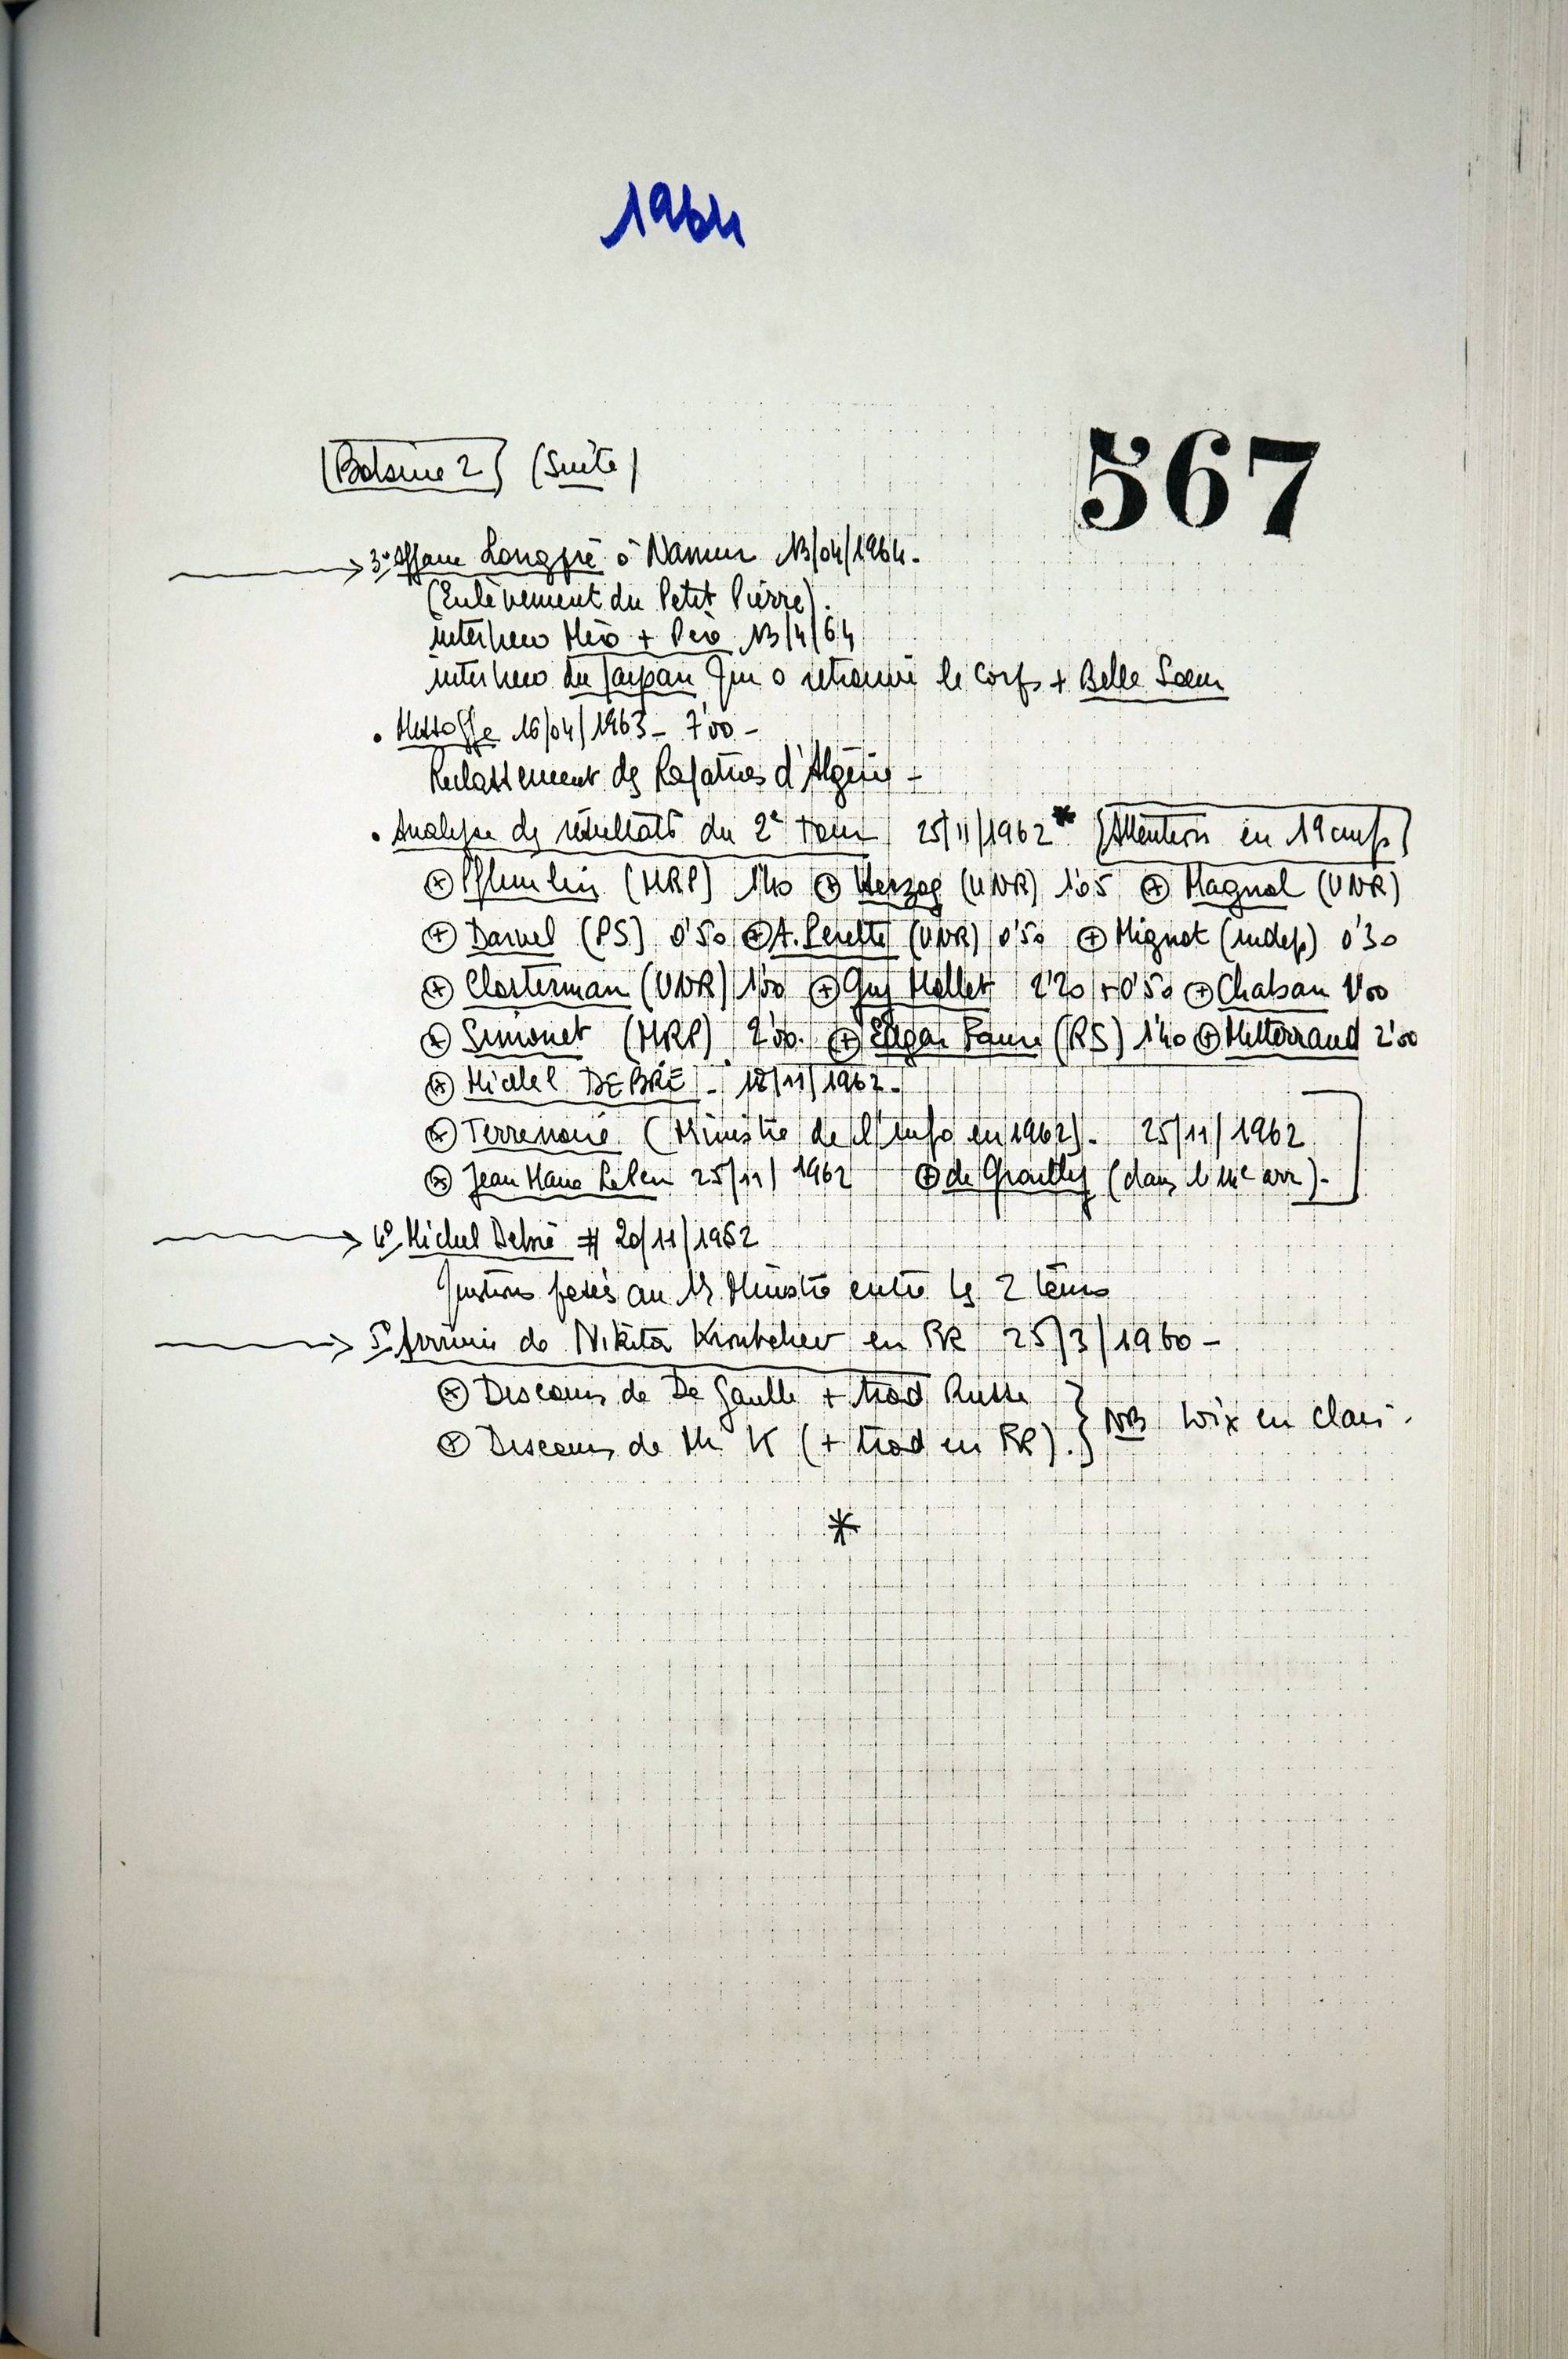 1964
567
Bobine 2 (Suite)
3° Affaire Longpré à Namur 13/04/1964.
(Enlèvement du Petit Pierre).
interview + 13/4/64
interview du qui a retrouvé le corps + Belle Soeur
• Messoffe 16/04/1963 - 7'00 -
Reclassement des Rapatriés d'Algérie -
• Analyse des résultats du 2e tour 25/11/1962 * Attention en 19 cm/s
⊕ Pflimlin (MRP) 1'40 ⊕ Herzog (UNR) 1'05 ⊕ Magnol (UNR)
⊕ Darnel (PS) 0'50 ⊕ A. Perette (UNR) 0'50 ⊕ Mignot (indep) 0'30
⊕ Closterman (UNR) 1'00 ⊕ Guy Mollet 2'20 + 0'50 ⊕ Chaban 1'00
⊕ Simonet (MRP) 2'00. ⊕ Edgar Faure (RS) 1'40 ⊕ Mitterrand 2'00
⊕ Michel DEBRÉ - 18/11/1962 -
⊕ Terrenoire (Ministre de l'info en 1962). 25/11/1962
⊕ Jean Marie Le Pen 25/11/1962 ⊕ de Grailly (dans le arr).
4° Michel Debré # 20/11/1962
Questions posées au 1er Ministre entre les 2 tours
5° Arrivée de Nikita Kroutchev en FR 25/3/1960 -
⊕ Discours de De Gaulle + trad Russe
⊕ Discours de Mr K (+ trad en FR). } NB en clair.
*